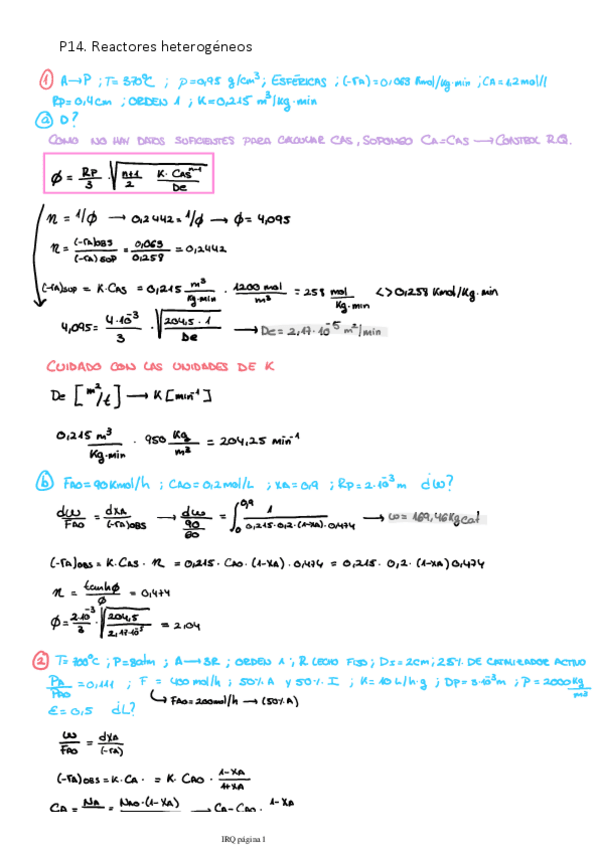 P14. Reactores heterogéneos
① A→P ; T=370ºC ; ρ=0,95 g/cm³ ; ESFÉRICAS ; (-ra)=0,063 Kmol/kg·min ; CA=1,2mol/l
Rp=0,4cm ; ORDEN 1 ; K=0,215 m³/kg·min
ⓐ D?
COMO NO HAY DATOS SUFICIENTES PARA CALCULAR CAS, SUPONGO CA=CAS → CONTROL RQ.
φ = Rp/3 · √(n+1/2 · K·CAS^(n-1)/De)
n = 1/φ → 0,2442=1/φ → φ = 4,095
n = (-ra)OBS/(-ra)SUP = 0,063/0,258 = 0,2442
(-ra)SUP = K·CAS = 0,215 m³/Kg·min · 1200 mol/m³ = 258 mol/Kg·min <> 0,258 Kmol/Kg·min
4,095 = 4·10⁻³/3 · √(204,5·1/De) → De = 2,17·10⁻⁵ m²/min
CUIDADO CON LAS UNIDADES DE K
De [m²/t] → K [min⁻¹]
0,215 m³/Kg·min · 950 Kg/m³ = 204,25 min⁻¹
ⓑ FAO=90Kmol/h ; CAO=0,2mol/L ; XA=0,9 ; Rp=2·10⁻³m ¿W?
dW/FAO = dXA/(-ra)OBS → dW/(90/60) = ∫₀^0,9 1/0,215·0,2·(1-XA)·0,474 → W=169,46Kgcat
(-ra)OBS = K·CAS · n = 0,215 · CAO·(1-XA)·0,474 = 0,215· 0,2·(1-XA)0,474
n = tanhφ/φ = 0,474
φ = 2·10⁻³/3 · √(204,5/2,17·10⁻⁵) = 2,04
② T=700ºC ; P=8atm ; A→3R ; ORDEN 1 ; R LECHO FIJO ; DI=2cm ; 25% DE CATALIZADOR ACTIVO
PA/PAO = 0,111 ; F = 400mol/h ; 50% A y 50% I ; K=10L/h·g ; DP=3·10⁻³m ; ρ=2000Kg/m³
↳ FAO=200mol/h → (50% A)
ε=0,5 ¿L?
W/FAO = dXA/(-ra)
(-ra)OBS = K·CA · = K·CAO · 1-XA/1+XA
CA = NA = NAO·(1-XA) → CA=CAO· 1-XA
IRQ página 1